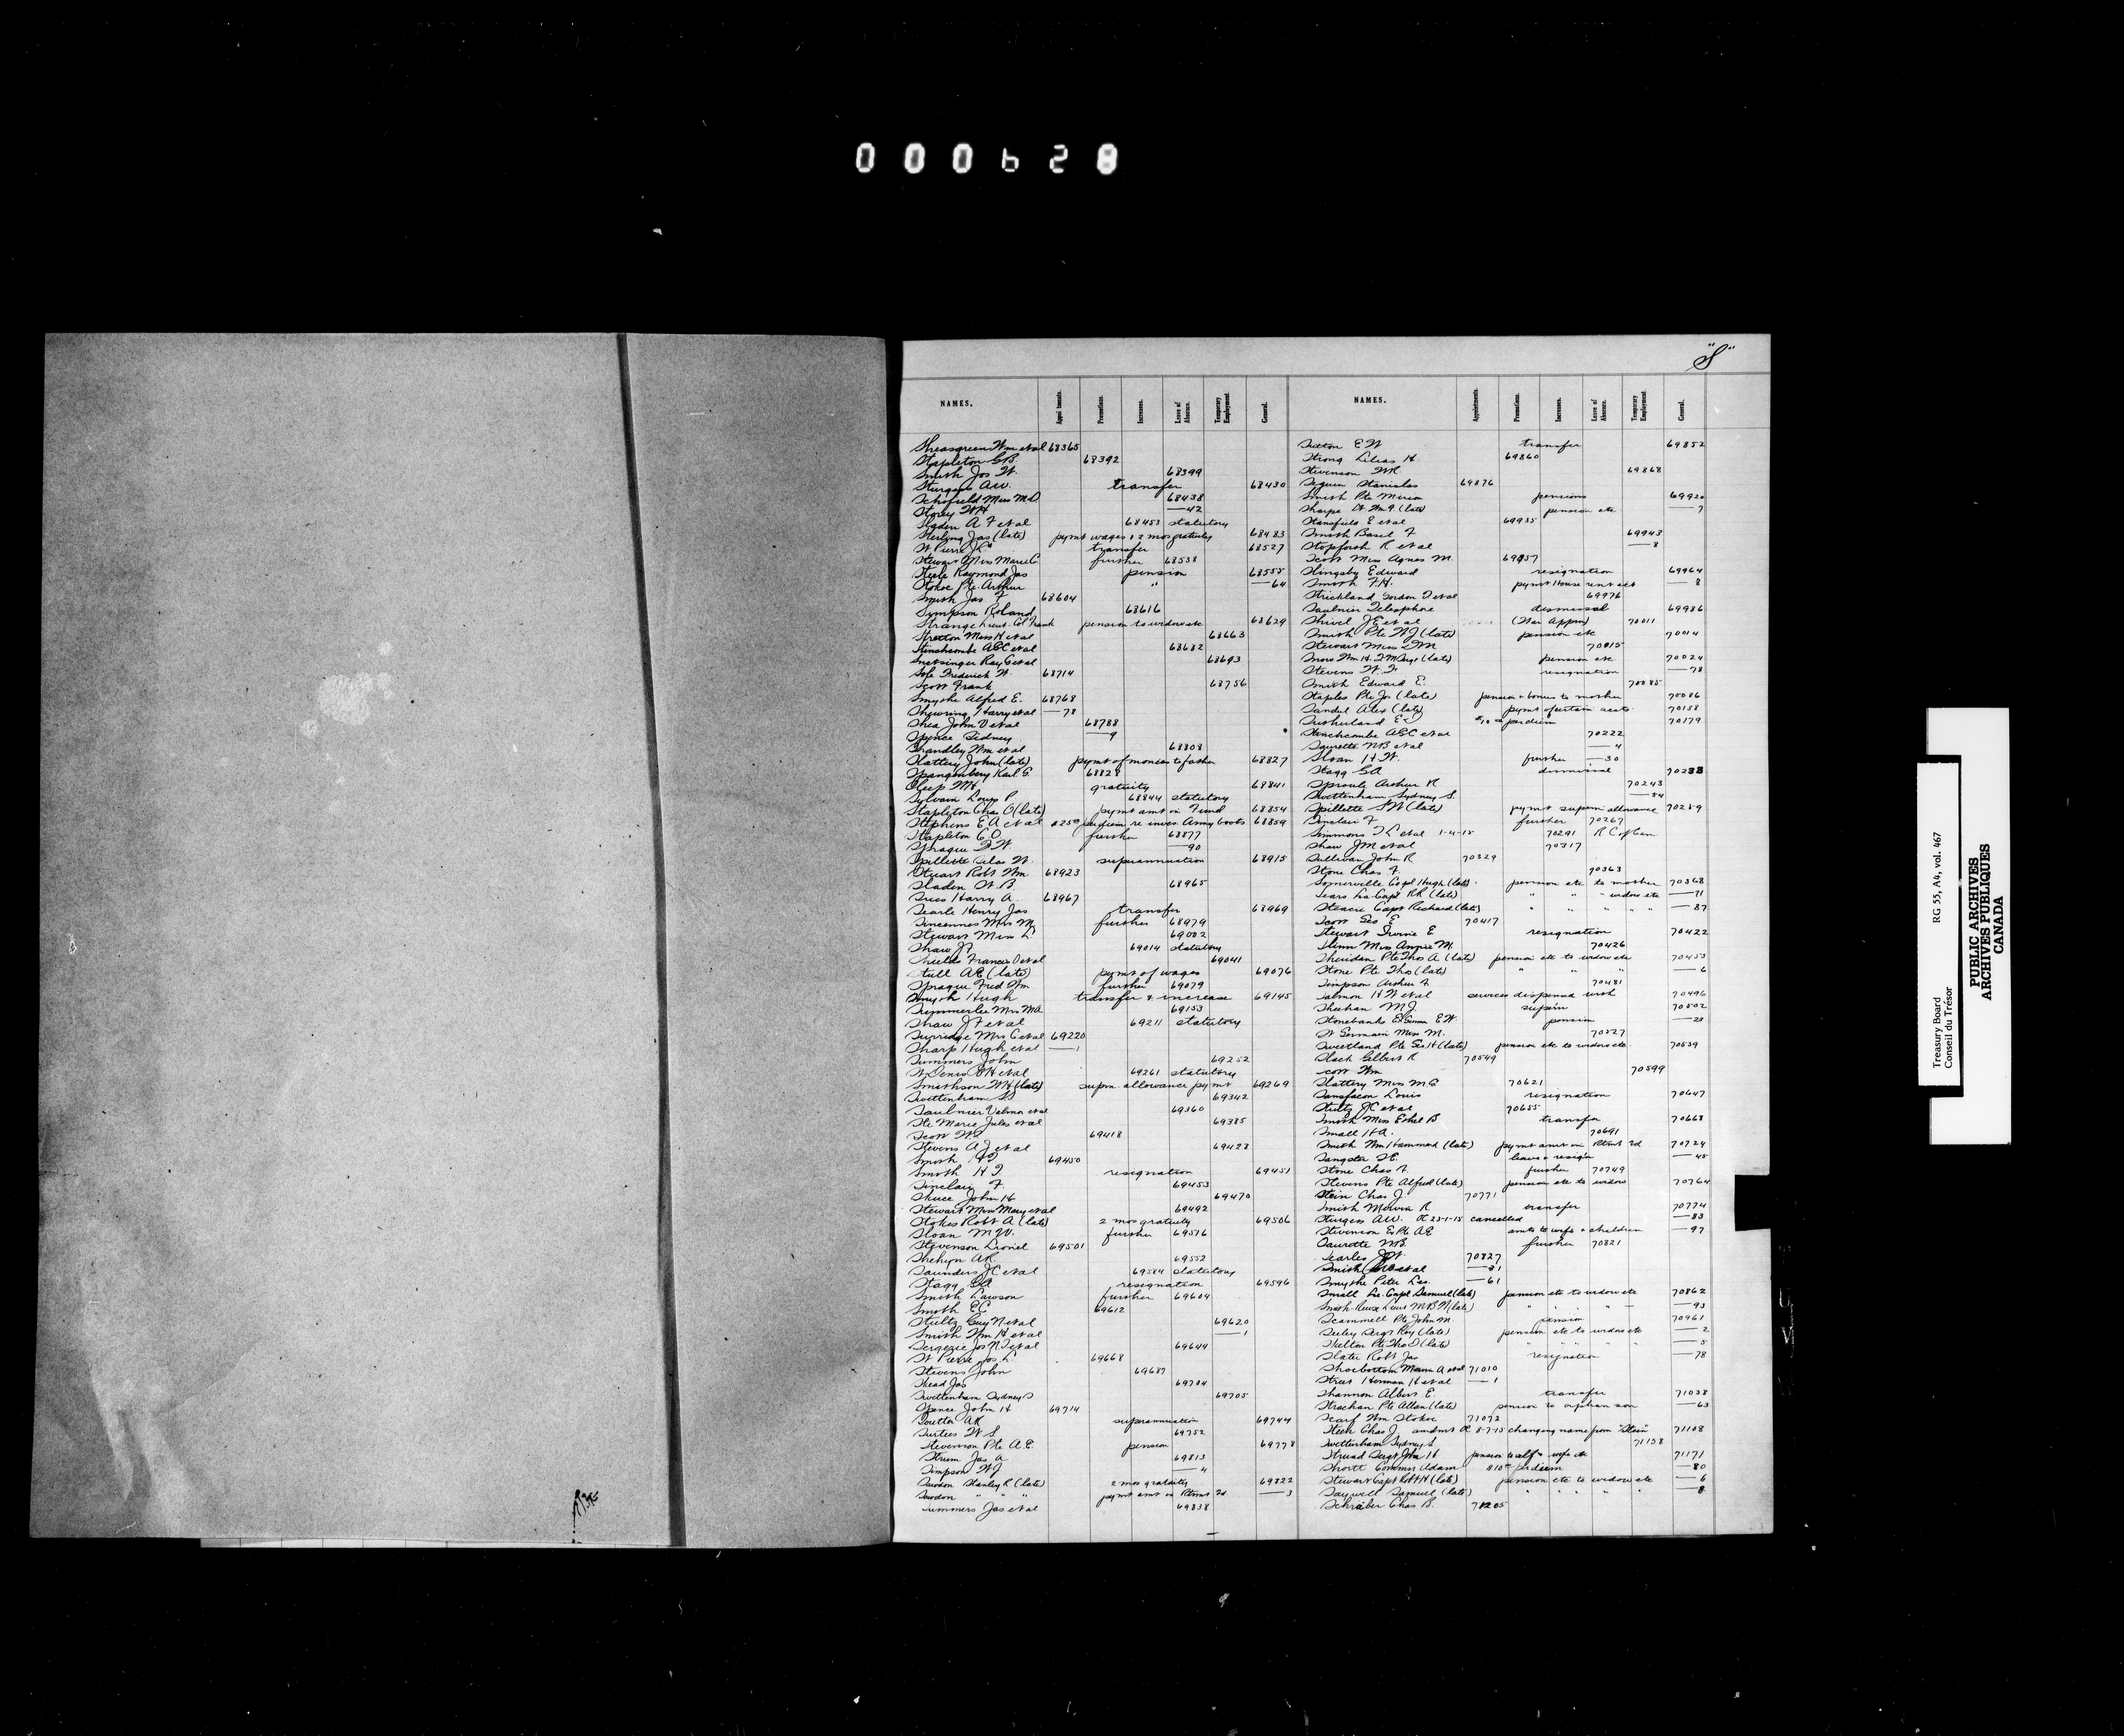 000628
"S"
NAMES. Appointments. Promotions. Increases. Leave of Absence. Temporary Employment. General.
Wm et al 68365
Stapleton G.B. 68392
Smith Jos W. 68399
Sturgess A.W. transfer 68430
Schofield Miss M.D 68438
Storey W.H — 42
Ogden A F et al 68453 statutory
Sterling Jas (late) pymt wages & 2 mos gratuity 68483
St Pierre J.C. transfer 68527
Stewart Miss Marie C further 68538
Steele Raymond Jas pension 68555
Stokoe Pte. Arthur " — 64
Smith Jas F 68604
Simpson Roland 68616
Strange Lieut. Col Frank pension to widow etc 68629
Stretton Miss H et al 68663
Stinchcombe A.E.C et al 68682
Snetsinger Ray C et al 68693
Sole Frederick W. 68714
Scott Frank 68756
Smythe Alfred E. 68768
Shewring Harry et al — 78
Shea John D et al 68788
Spence Sidney — 9
Standley Wm et al 68808
Slattery John (late) pymt of monies to father 68827
Spangenberg Karl G. 68828
Sleep M.H. gratuity 68841
Sylvain Louis P 68844 statutory
Stapleton Chas O (late) pymt amt in Fund 68854
Stephens E A et al $25.00 perdiem re inves. Army boots 68859
Stapleton C O further 68877
Sprague D.W. — 90
Spillette Silas W. superannuation 68915
Stuart Robt Wm 68923
Sladen W.B. 68965
Sries Harry A. 68967
Searle Henry Jas transfer 68969
Sincennes Mrs M. further 68979
Stewart Miss L 69002
Shaw J F 69014 statutory
Shields Francis O et al 69041
Stull A.E. (late) pymt of wages 69076
Sprague Fred Wm further 69079
Smyth Hugh transfer & increase 69145
Summerlee Mrs M.A 69153
Shaw J F et al 69211 statutory
Surridge Mrs C et al 69220
Sharp Hugh et al — 1
Summers John 69252
St Denis E H et al 69261 statutory
Smithson W.H (late) supn. allowance pymt 69269
Swettenham S.S 69342
Saulnier Valmore et al 69360
Ste Marie Jules et al 69385
Scott W.L. 69418
Stevens A.J et al 69428
Smith H.T 69450
Smith H T resignation 69451
Sinclair F. 69453
Skuce John H 69470
Stewart Miss Mary et al 69492
Stokes Robt A (late) 2 mos gratuity 69506
Sloan M.W. further 69516
Stevenson Lionel 69501
Shehyn A.R. 69552
Saunders J C et al 69584 statutory
Stagg G.A. resignation 69596
Smith Lawson further 69604
Smith E.C. 69612
Stultz Guy N et al 69620
Smith Wm H et al — 1
Sergerie Jos N.D et al 69644
St Pierre Jos L. 69668
Stevens John 69687
Skead Jas 69704
Swettenham Sydney S 69705
Spence John H 69714
Soutter A.R superannuation 69744
Surtees W S. 69752
Stevenson Pte. A.E. pension 69778
Strum Jas A 69813
Simpson W J — 4
Sowdon Stanley R (late) 2 mos gratuity 69822
Sowdon " " " pymt amt in Retmt Fd — 3
Summers Jas et al 69838
NAMES. Appointments. Promotions. Increases. Leave of Absence. Temporary Employment. General.
Sutton E W transfer 69852
Strong Lileas H. 69860
Stevenson W.R. 69868
Seguin Stanislas 69876
Smith Pte Mirren pensions 69920
Sharpe Lt Wm G (late) pension etc — 7
Stansfield E et al 69935
Smith Basil F 69943
Stopforth R et al — 8
Scott Miss Agnes M. 69957
Slingsby Edward resignation 69964
Smith F.H. pymt House rent acct — 8
Strickland Gordon D et al 69976
Saulnier Telesphore dismissal 69986
Shivel J E et al (War Appn) 70011
Smith Pte W J (late) pension etc 70014
Stewart Miss D M 70015
Moss Wm H. D.M. Sergt (late) pension etc 70024
Stevens W.F. resignation — 78
Smith Edward E. 70085
Staples Pte Jos (late) pension & bonus to mother 70086
Sandul Alex (late) pymt of certain accts 70138
Sutherland E.J $10.00 perdiem 70179
Stinchcombe A.E.C et al 70222
Saurette N B et al — 4
Sloan H W. further — 30
Stagg G.A dismissal 70238
Sproule Arthur R 70243
Swettenham Sydney S. — 54
Spillette S.W (late) pymt supern allowance 70259
Sinclair F further 70267
Simmons T L et al 1-4-15 70291 R C of Can
Shaw J M et al 70317
Sullivan John R 70329
Stone Chas F. 70363
Somerville Corpl Hugh (late) pension etc to mother 70368
Sears La Corpl R.R (late) " " " widow etc — 71
Steacie Capt Richard (late) " " " " " — 87
Scott Geo E 70417
Stewart Irvine E resignation 70422
Slinn Miss Angie M. 70426
Sheridan Pte Thos A (late) pension etc to widow etc 70453
Stone Pte Thos (late) " " " — 6
Simpson Arthur F. 70481
Salmon H W et al services dispensed with 70496
Sheehan M J. supern 70502
Stonebanks E.W. pension — 23
St Germain Miss M. 70527
Sweetland Pte Geo H (late) pension etc to widow etc 70539
Slack Gilbert R 70549
Scott Wm 70599
Slattery Miss M C 70621
Sansfacon Louis resignation 70647
Stultz J C et al 70655
Smith Miss Ethel B transfer 70668
Small H A. 70691
Smith Wm Hammond (late) pymt amt in Retmt Fd 70724
Sangster H. leave & resig'n — 45
Stone Chas F. further 70749
Stevens Pte Alfred (late) pension etc to widow 70764
Stein Chas J. 70771
Smith Mowia R transfer 70774
Sturgess A.W. OC 23-1-15 cancelled — 83
Stevenson Ex Pte A.E amts to wife & children — 97
Saurette N.B. further 70821
Searles J.W. 70827
Smith et al — 31
Smythe Peter Leo. — 61
Small La. Corpl Samuel (late) pension etc to widow etc 70862
Smith-Rewse Lieut M B M (late) " " " " — 93
Scammell Pte John M. pension 70961
Seeley Sergt Roy (late) pension etc to widow etc — 2
Skelton Pte Thos D (late) " " " — 5
Slater Robt Jas resignation — 78
Shoebottom Merna A et al 71010
Street Herman H et al — 1
Shannon Albert E. transfer 71038
Strachan Pte Allan (late) pension to orphan son — 63
Scarf Wm Stokoe 71072
Steen Chas J. amdmt OC 8-7-15 changing name from "Stein" 71108
Swettenham Sydney S 71138
Stroud Sergt John H pension to self & wife etc 71171
Shortt Commr Adam $10.00 perdiem — 80
Stewart Capt Robt H (late) pension etc to widow etc — 6
Saywell Samuel (late) " " " " " — 8
Schreiber Chas B. 71205
Treasury Board RG 55, A4, vol. 467
Conseil du Trésor
PUBLIC ARCHIVES
ARCHIVES PUBLIQUES
CANADA